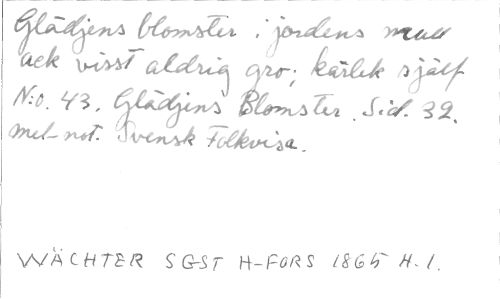 Glädjens blomster i jordens mull
ack visst aldrig gro; kärlek själf
N:o. 43. Glädjens Blomster. Sid. 32.
mel-not. Svensk Folkvisa.
WÄCHTER SGST H-FORS 1865 H.1.